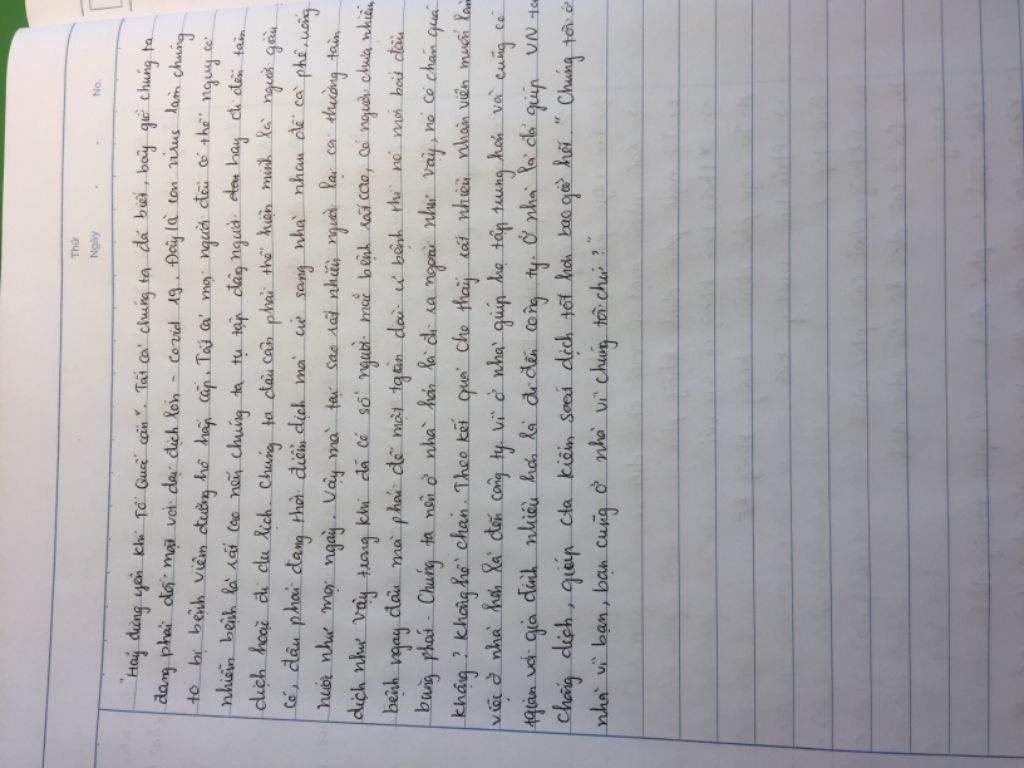 Thứ
Ngày
No.
"Hãy đứng yên khi Tổ Quốc cần". Tất cả chúng ta đã biết, bây giờ chúng ta
đang phải đối mặt với đại dịch lớn - covid 19. Đây là con virus làm chúng
ta bị bệnh viêm đường hô hấp cấp. Tất cả mọi người đều có thể nguy cơ
nhiễm bệnh là rất cao nếu chúng ta tụ tập đông người hay đi đến tâm
dịch hoặc đi du lịch. Chúng ta đâu cần phải thể hiện mình là người giàu
có, đâu phải đang thời điểm dịch mà cứ sang nhà nhau để cà phê, uống
nước như mọi ngày. Vậy mà tại sao rất nhiều người lại coi thường tâm
dịch như vậy trong khi đã có số người mắc bệnh rất cao, có người chưa nhiễm
bệnh ngay đâu mà phải để một tgian dài ủ bệnh thì nó mới bắt đầu
bùng phát. Chúng ta nên ở nhà hơn là đi ra ngoài như vậy, nó có chán quá
không? Không hề chán. Theo kết quả cho thấy rất nhiều nhân viên muốn làm
việc ở nhà hơn là đến công ty vì ở nhà giúp họ tập trung hơn và cũng có
tgian với gia đình nhiều hơn là đi đến công ty. Ở nhà là đã giúp VN ta
chống dịch, giúp cta kiểm soát dịch tốt hơn bao giờ hết. "Chúng tôi ở
nhà vì bạn, bạn cũng ở nhà vì chúng tôi chứ?"